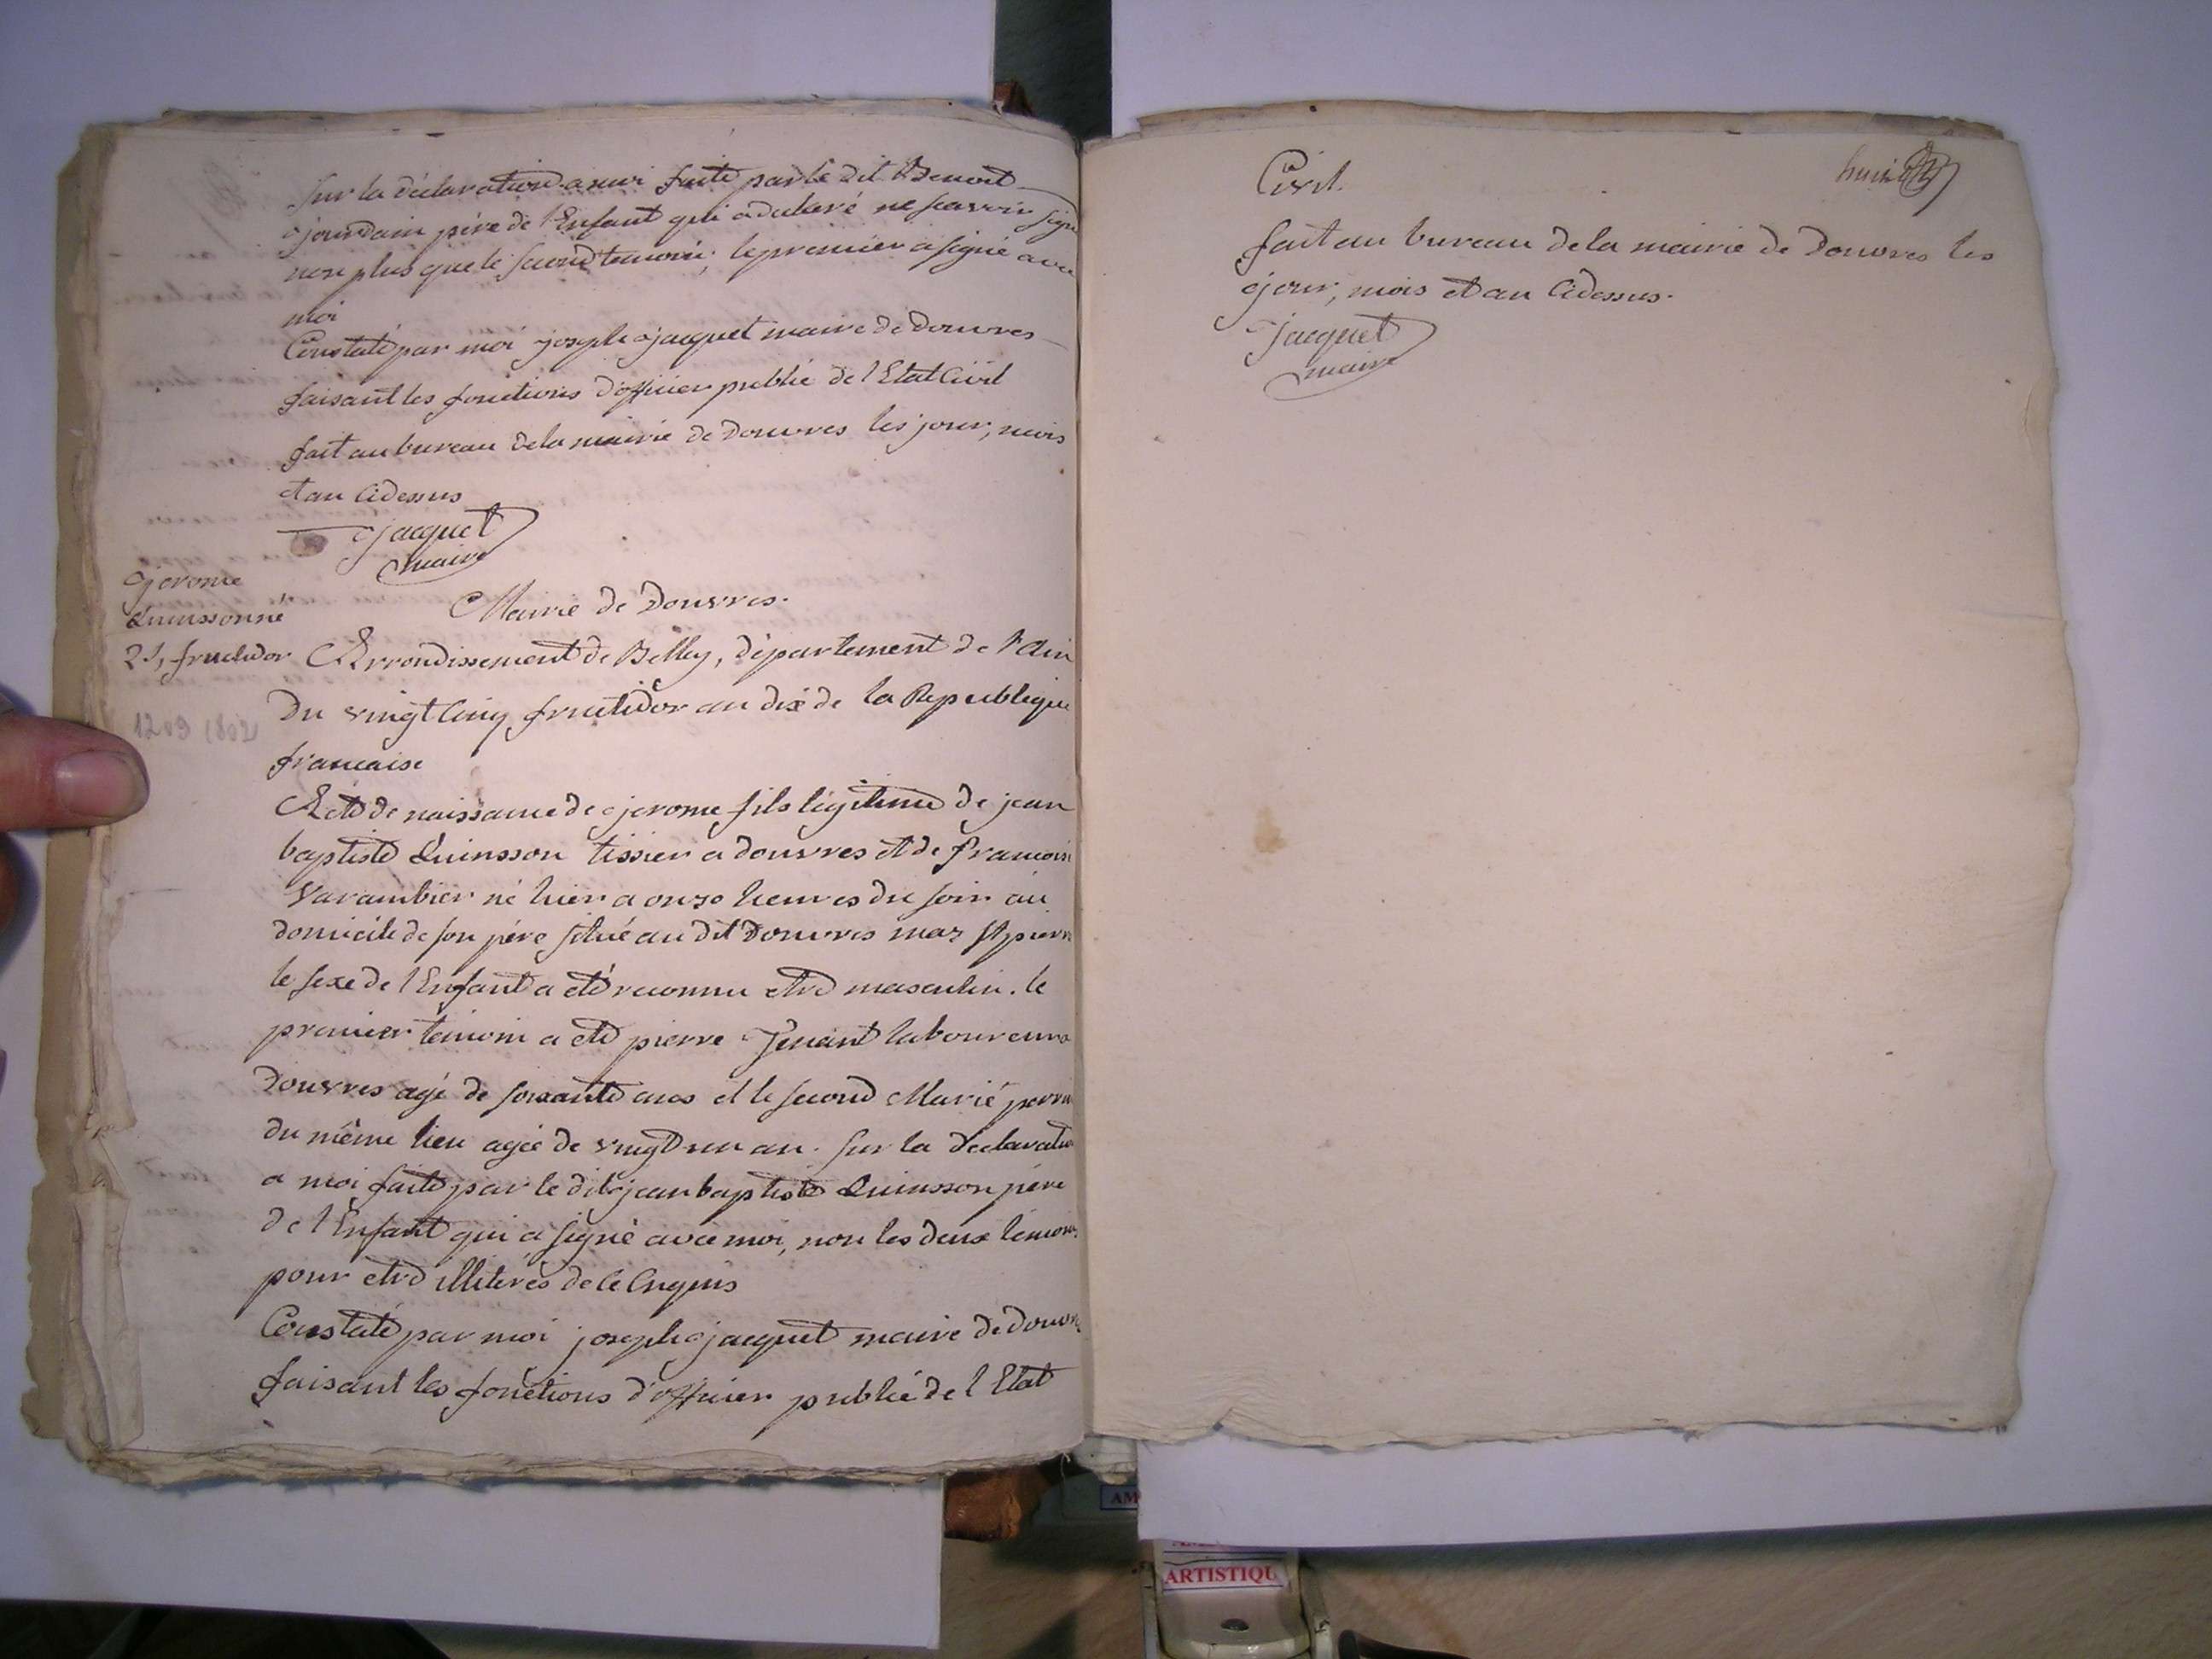 Sur la déclaration a moi faite par le dit Benoit
jourdain père de l'Enfant qui a déclaré ne scavoir signe
non plus que le second temoin; le premier a signé avec
moi
Constaté par moi joseph jacquet maire de Douvres
faisant les fonctions d'officier public de l'Etat Civil
fait au bureau de la mairie de Douvres les jour, mois
et an Cidessus
jacquet
maire
jerome
Quinsson né
25, fructidor
Mairie de Douvres.
Arrondissement de Belley, département de l'Ain
Du vingt Cinq fructidor an dix de la Republique
francaise
1802
Acte de naissance de jerome fils légitime de jean
baptiste Quinsson tissier a douvres et de francoise
Varambier né hier a onze heures du soir au
domicile de son père situé au dit Douvres maz St pierre
le sexe de l'Enfant a été reconnu etre masculin. le
premier témoin a eté pierre laboureur a
Douvres agé de soixante ans et le second Marie perrin
du même lieu agée de vingt un an. Sur la déclaration
a moi faite par le dit jean baptiste Quinsson père
de l'Enfant qui a signé avec moi, non les deux témoins
pour etre illitérés de ce Enquis
Constaté par moi joseph jacquet maire de Douvres
faisant les fonctions d'officier public de l'Etat
huit
Civil.
fait au bureau de la mairie de Douvres les
jour, mois et an Cidessus.
jacquet
maire
AM
ARTISTIQU